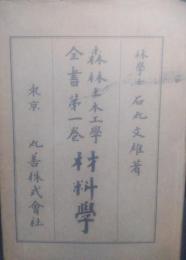 林學士 石丸文雄著
森林土木工學
全書第一巻 材料學
東京 丸善株式會社